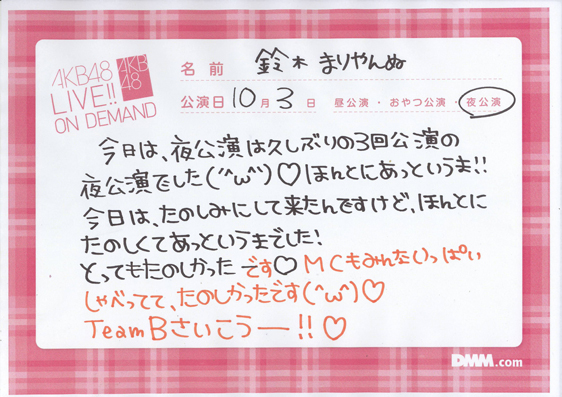 AKB48
LIVE!!
ON DEMAND
AKB
48
名前 鈴木 まりやんぬ
公演日 10月3日 昼公演・おやつ公演・夜公演
今日は、夜公演は久しぶりの3回公演の
夜公演でした(^ω^)♡ほんとにあっというま!!
今日は、たのしみにして来たんですけど、ほんとに
たのしくてあっというまでした!
とってもたのしかったです♡MCもみんないっぱい
しゃべってて、たのしかったです(^ω^)♡
TeamBさいこうー!!♡
DMM.com